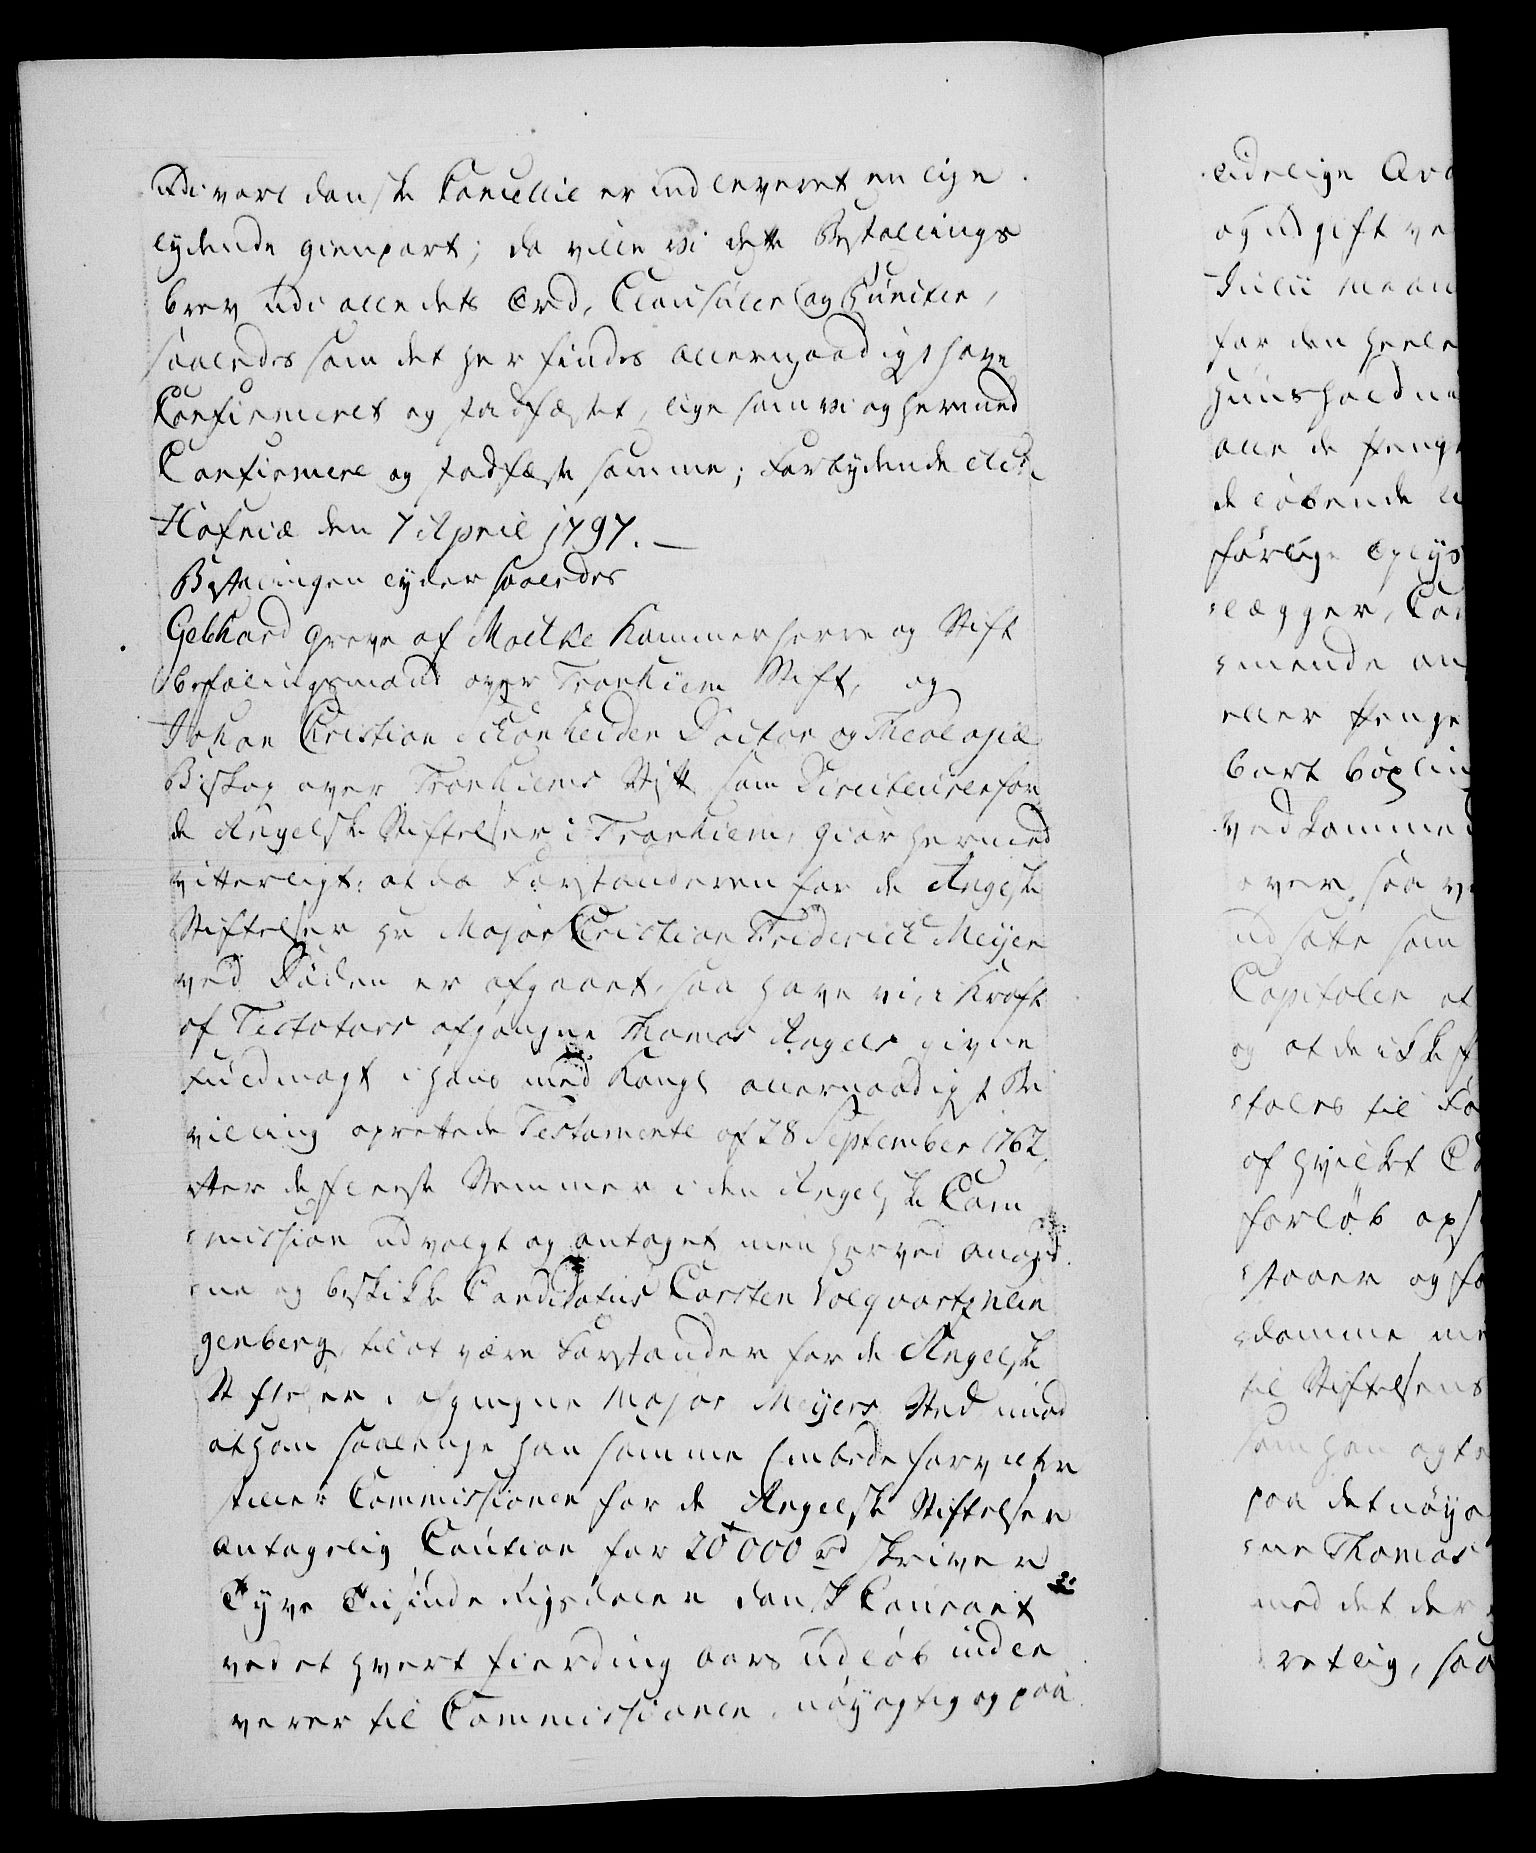 udi vort danske Cancellie er indleveret en lige
lydende gienpart; da ville vi dette Bestallings
brev udi alle dets Ord, Clausuler og Puncter,
saaledes som det her findes allernaadigst have
Confirmeret og stadfæstet, lige som vi og hermed
Confirmere og stadfæste samme; Forbydende etc.
Hafniæ den 7 April 1797. —
Bestallingen lyder saaledes
Gebhard Greve af Moltke Kammerherre og Stift
befalingsmand over Tronhiem Stift, og
Johan Cristian Schönheider Doctor og Theologiæ
Biskop over Tronhiems Stift som Directeurer for
de Angelske Stiftelser i Tronhiem, giør hermed
vitterligt: at da Forstanderen for de Angelske
Stiftelser Hr Major Cristian Friderich Meijer
ved Døden er afgaaet, saa have vi, i Kraft
af Testators afgangne Thomas Angels givne
Fuldmagt i hans med Kongl allernaadigst Be
villing oprettede Testamente af 28 September 1762
efter de fleeste Stemmer i den Angelske Com
mission udvalgt og antaget men herved anord
ne og beskikke Candidatus Carsten Volqvartz Klin
genberg, til at være Forstander for de Angelske
Stiftelser i afgangne Major Meijers Sted imod
at han saalenge han samme Embede forvalter
stiller Commissionen for de Angelske Stiftelser
antagelig Caution for 20000 rd skriver
Tyve Tusinde Rigsdaler dansk Courant
ved et hvert fierding aars udløb indle
verer til Commissionen, nøyagtig og paa
eidelige
og udgift
Julii Maan
for den heele
Huusholdn
alle de Penge
de løbende
førlige oplys
lægger,
mende an
eller Penge
bort
vedkomme
over, saa
udsatte som
Capitaler at
og at de ikke
tales til
af hvilket
forløb
staaer og
domme
til Stiftelsens
som han agte
paa det nøya
ne Thomas
med det der
retlig, saa